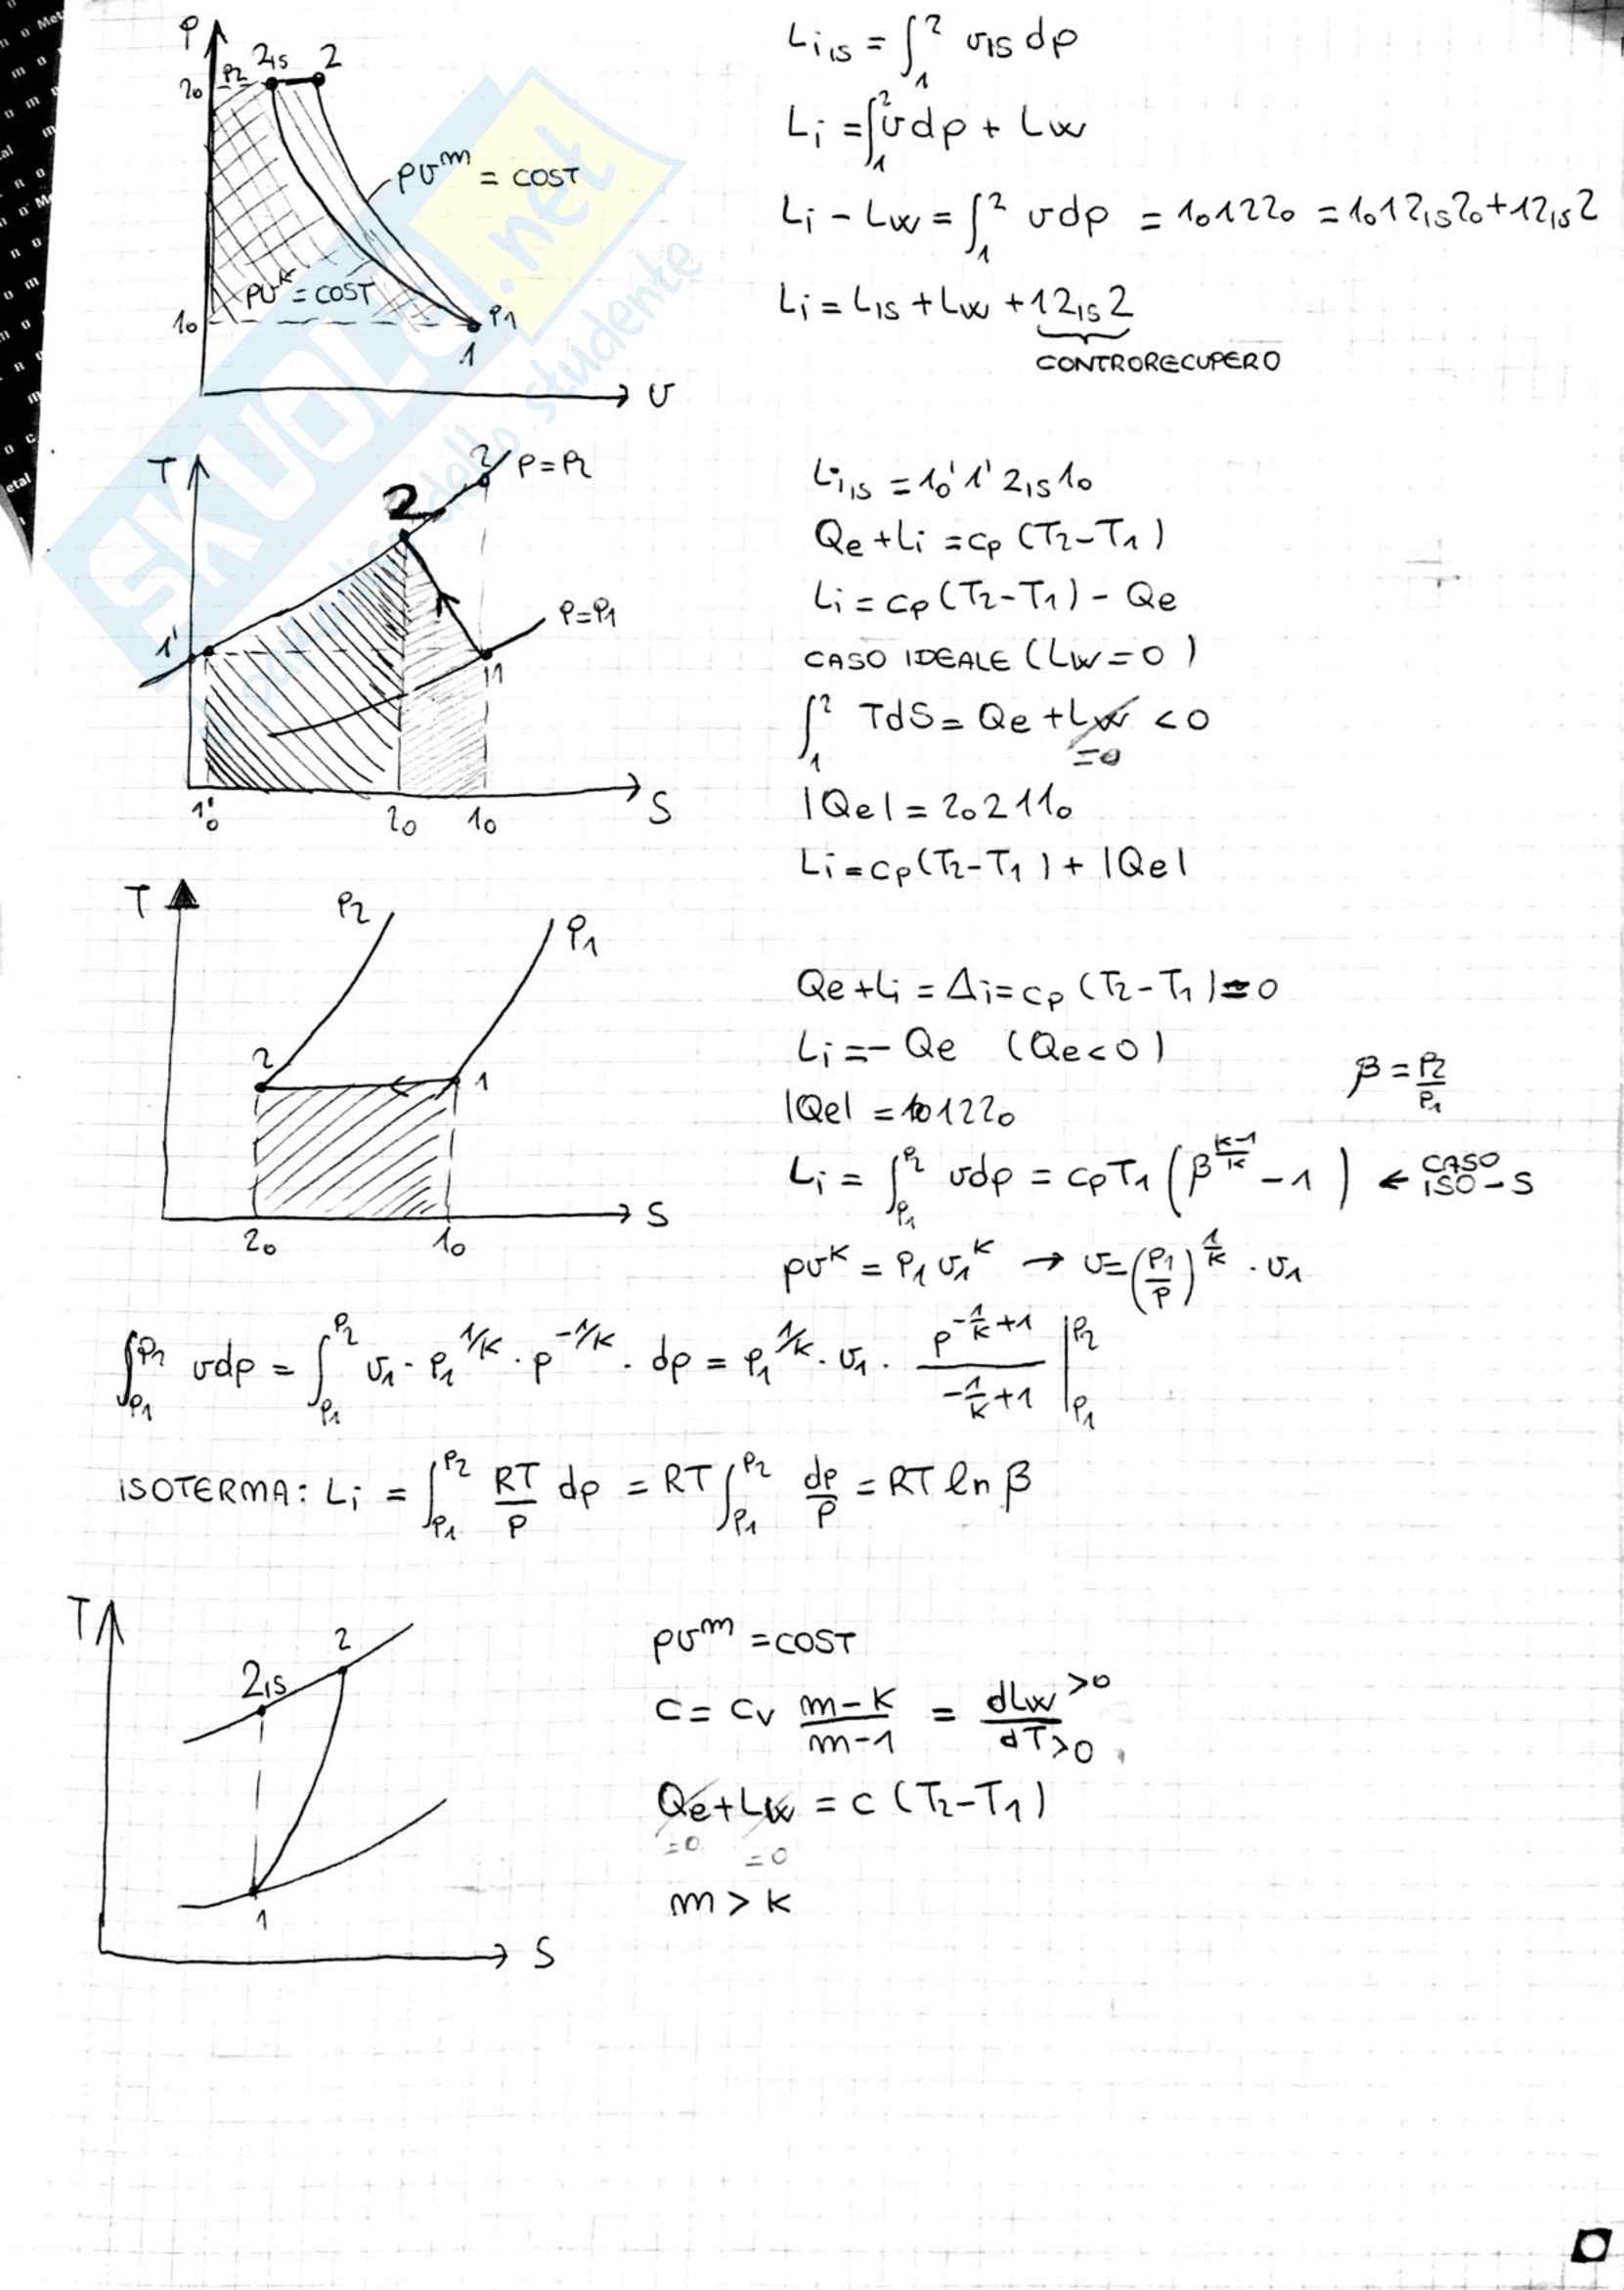 P
20 P2 2is 2
pv^m = COST
pv^k = COST
10 P1
1
v
Li,is = ∫₁² vis dp
Li = ∫₁² v dp + Lw
Li - Lw = ∫₁² v dp = 10 1 2 20 = 10 1 2is 20 + 1 2is 2
Li = Lis + Lw + 1 2is 2
CONTRORECUPERO
T
2 P=P2
2
1'
P=P1
1
1'0 20 10 S
Li,is = 1'0 1' 2is 10
Qe + Li = cp (T2-T1)
Li = cp (T2-T1) - Qe
CASO IDEALE (Lw=0)
∫₁² TdS = Qe + Lw < 0
=0
|Qe| = 20 2 1 10
Li = cp (T2-T1) + |Qe|
T
P2 P1
2 1
20 10 S
Qe + Li = Δi = cp (T2-T1) = 0
Li = - Qe (Qe<0)
β = P2/P1
|Qe| = 10 1 2 20
Li = ∫_P1^P2 v dp = cp T1 (β^((k-1)/k) - 1) ← CASO ISO-S
pv^k = P1 v1^k → v = (P1/P)^(1/k) · v1
∫_P1^P2 v dp = ∫_P1^P2 v1 · P1^(1/k) · p^(-1/k) · dp = P1^(1/k) · v1 · p^(-1/k+1) / (-1/k+1) |_P1^P2
ISOTERMA: Li = ∫_P1^P2 RT/P dp = RT ∫_P1^P2 dp/P = RT ln β
T
2is 2
1
S
pv^m = COST
c = cv (m-k)/(m-1) = dLw>0 / dT>0
Qe + Lw = c (T2-T1)
=0 =0
m > k
SKUOLA.net
dello studente